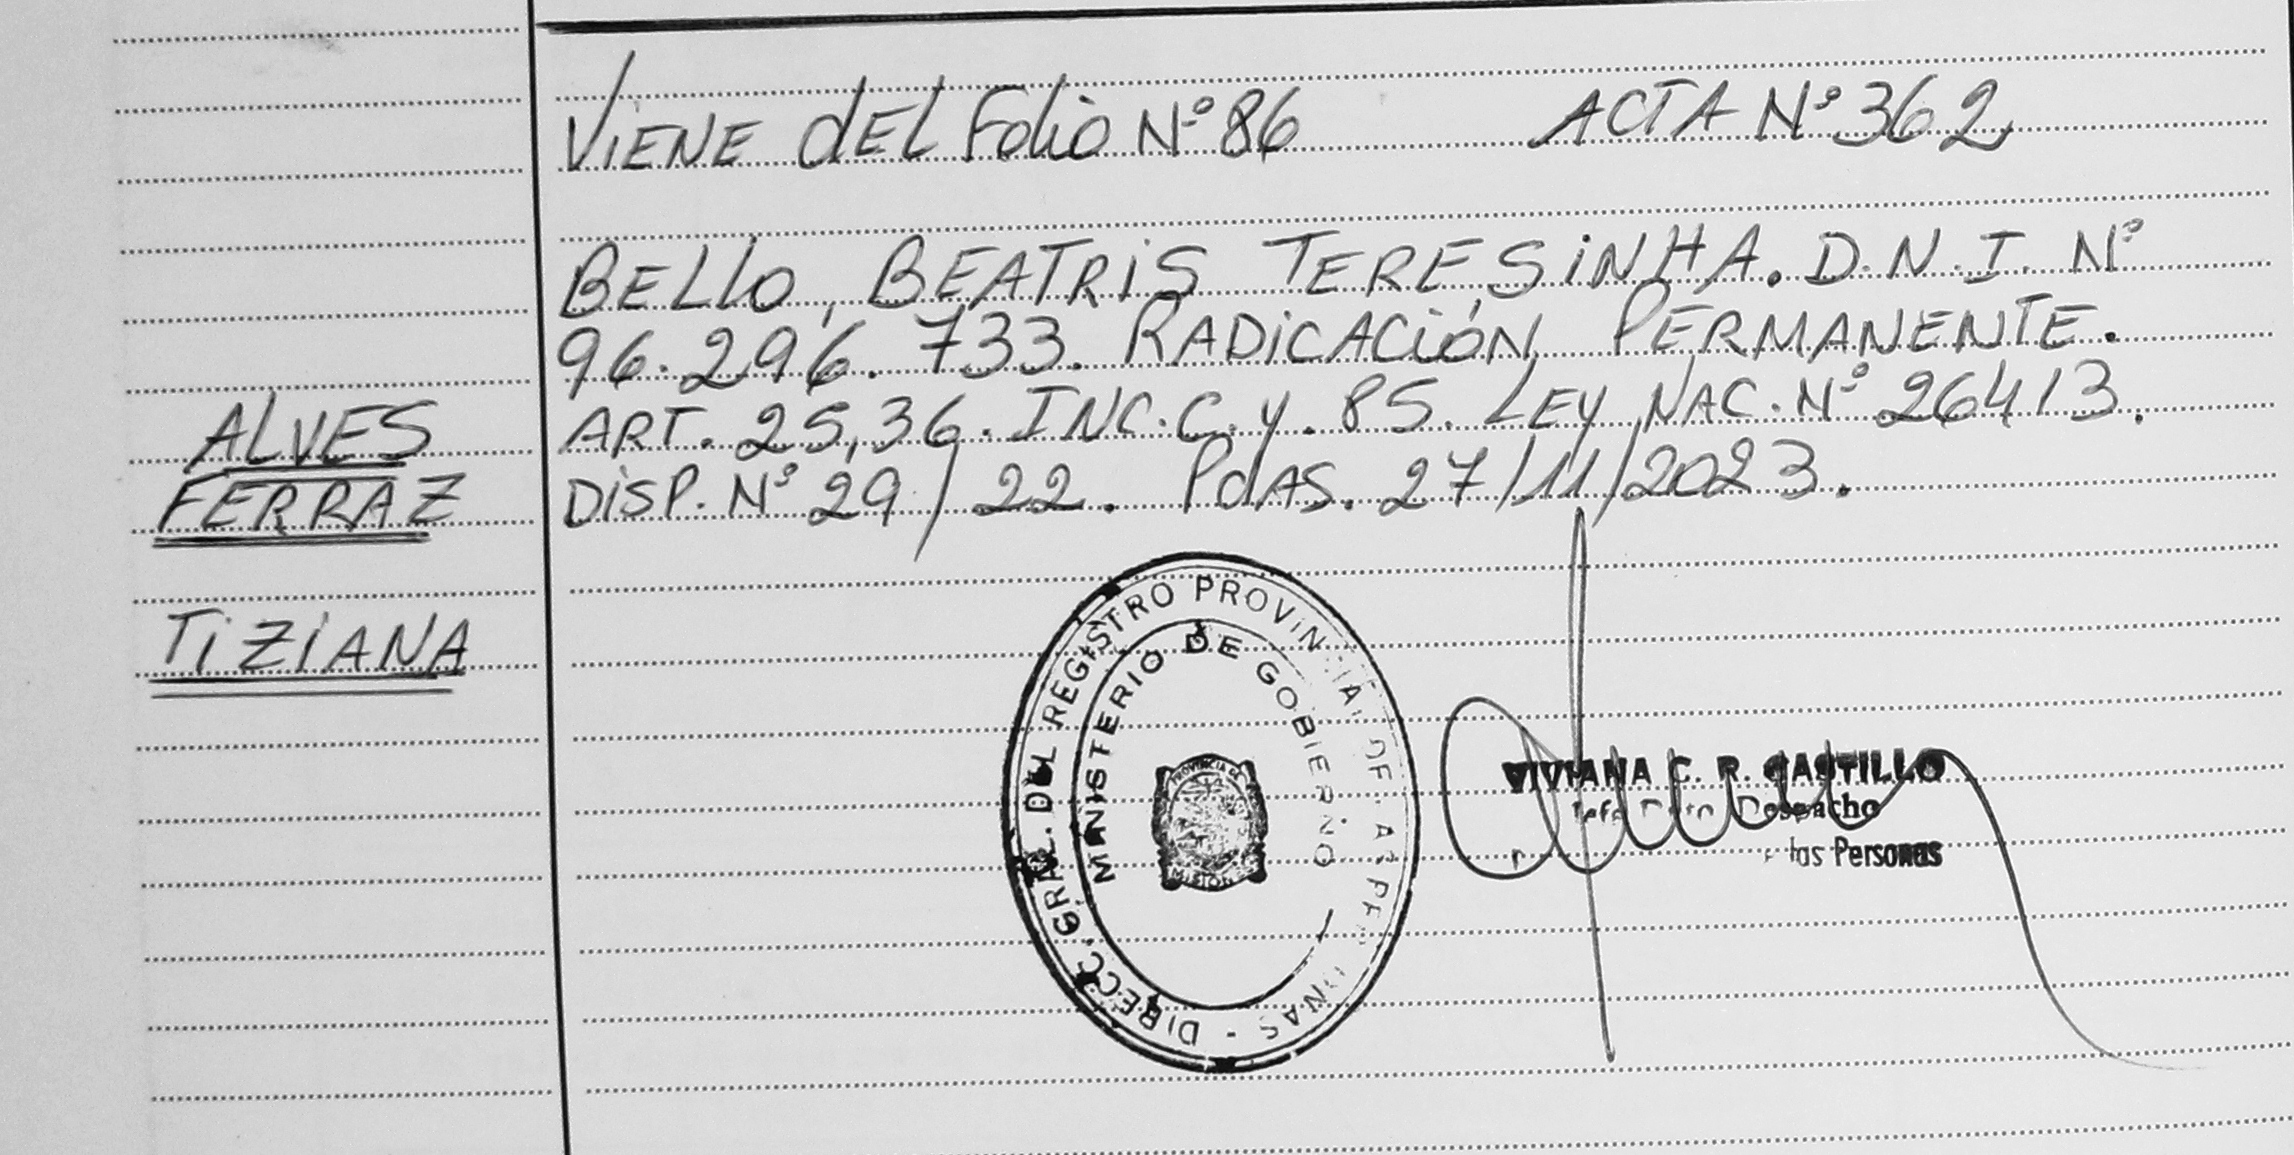 VIENE dEL Folio Nº 86 ACTA Nº 362
BELLO, BEATRIS TERESINHA. D.N.I. Nº
96.296.733. RADICACIÓN PERMANENTE.
ART. 25, 36. INC. C. y. 85. LEY NAC. Nº 26413.
DISP. Nº 29/22. PdAS. 27/11/2023.
ALVES
FERRAZ
TIZIANA
DIRECC. GRAL. DEL REGISTRO PROVINCIAL DE LAS PERSONAS -
MINISTERIO DE GOBIERNO
PROVINCIA DE
MISIONES
VIVIANA C. R. CASTILLO
Despacho
las Personas